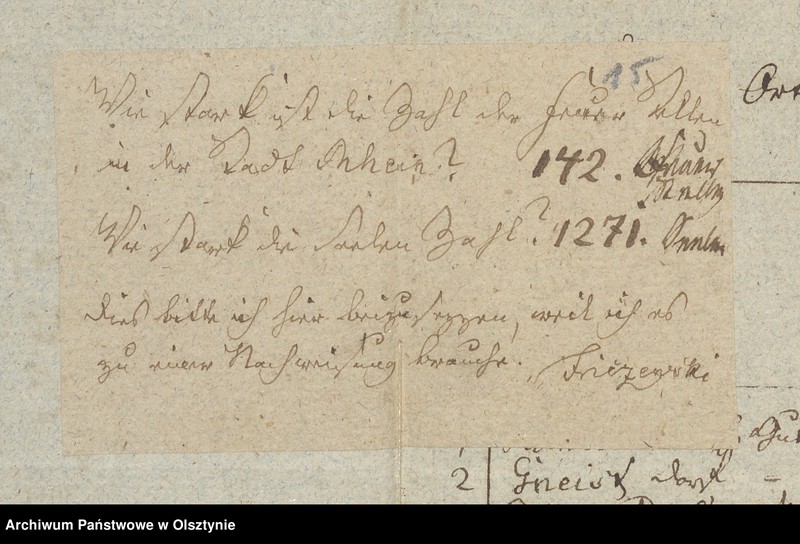 15
Wie stark ist die Zahl der Feuer Stellen
in der Stadt Rhein? 142. Feuer
Stellen
Wie stark die Seelen Zahl? 1271. Seelen
Dies bitte ich hier beizusezzen, weil ich es
zu einer Nachweisung brauche. Friczewski
Ort
Gut
2 Gneist dorf -
Archiwum Państwowe w Olsztynie